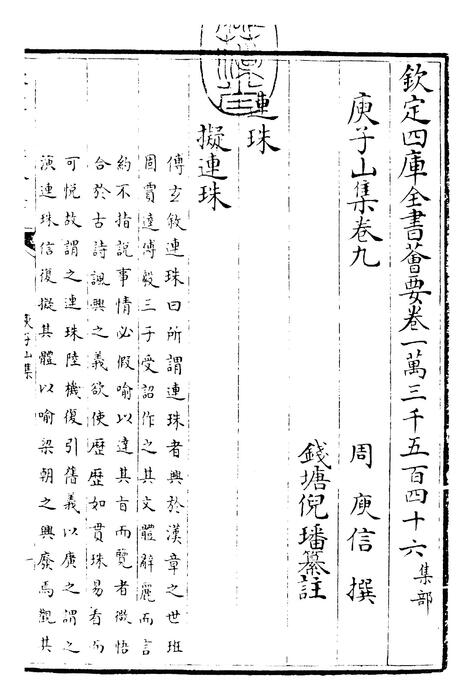 欽定四庫全書薈要卷一萬三千五百四十六集部
庾子山集卷九
周庾信撰
錢塘倪璠纂註
連珠
擬連珠
傅玄敘連珠曰所謂連珠者興於漢章之世班
固賈逵傅毅三子受詔作之其文體辭麗而言
約不指說事情必假喻以達其旨而覽者微悟
合於古詩諷興之義欲使歷歷如貫珠易看而
可悅故謂之連珠陸機復引舊義以廣之謂之
演連珠信復擬其體以喻梁朝之興廢焉觀其
庾子山集
一